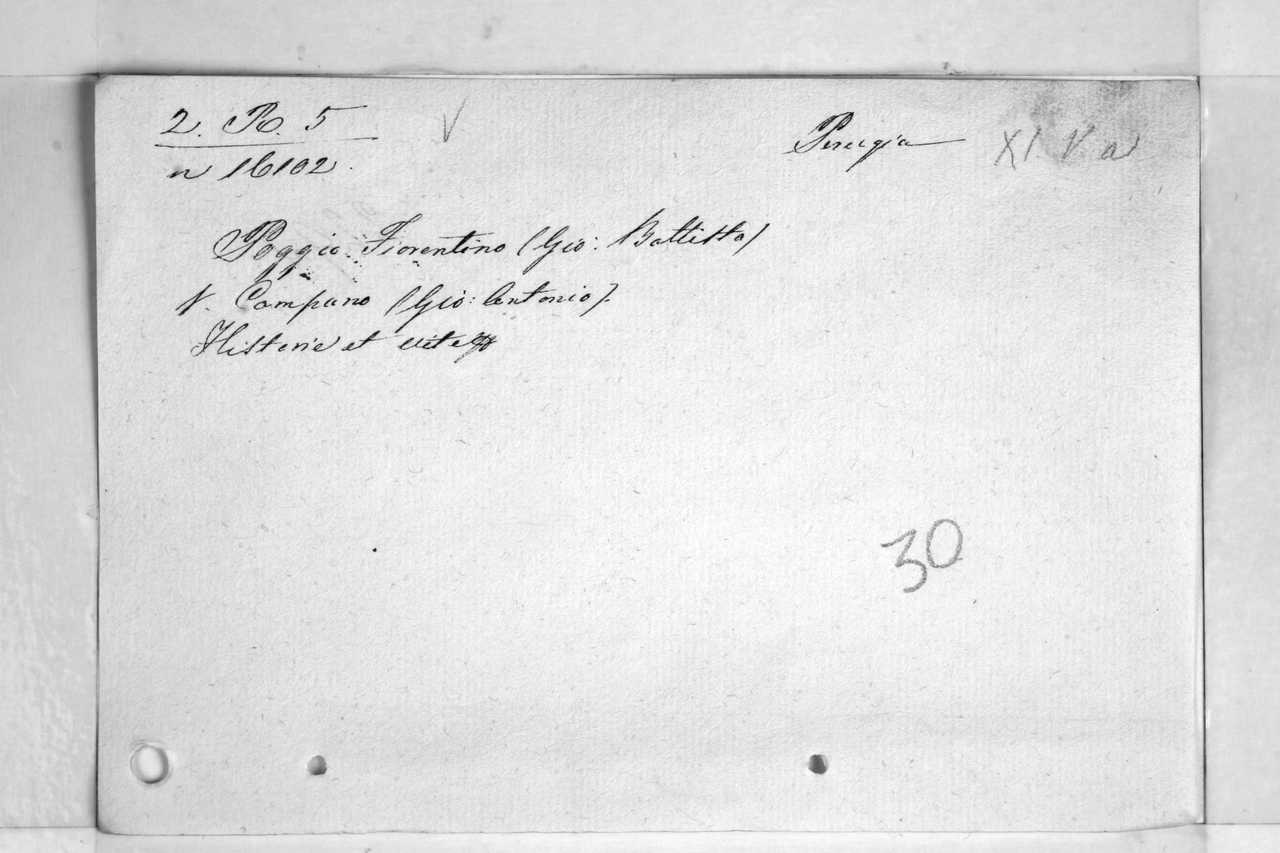 2. R. 5 V
Perugia XI V a
n 16102.
Poggio Fiorentino (Gio: Battista)
V. Campano (Gio: Antonio).
Historie et vite
30